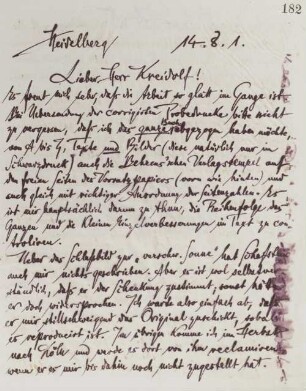 182
Heidelberg 14. 8. 1.
Lieber Herr Kreidolf!
Es freut mich sehr, dass die Arbeit so glatt im Gange ist
Bei Uebersendung der corrigirten Probedrucke bitte nicht
zu vergessen, dass ich das ganze Buch abgezogen haben möchte,
von A bis Z, Texte und Bilder (diese natürlich nur in
Schwarzdruck) auch die Behrens'schen Verlagsstempel auf
den freien Seiten des Vorsatzpapiers (vorn wie hinten) und
auch gleich mit richtiger Anordnung der Seitenzahlen. Es
ist mir hauptsächlich darum zu thun, die Reihenfolge des
Ganzen und die kleinen Einzelverbesserungen im Text zu con-
troliren.
Ueber das Schlussbild zur "verschn. Sonne" hat Schafstein
auch mir nicht geschrieben. Aber es ist wol selbstver-
ständlich, dass er der Schenkung zustimmt, sonst hätte
er doch widersprochen. Ich warte also einfach ab, dass
er mir stillschweigend das Original zuschickt, sobald
es reproducirt ist. Im übrigen komme ich im Herbst
nach Köln und werde es dort von ihm reclamiren,
wenn er es mir bis dahin noch nicht zugestellt hat.